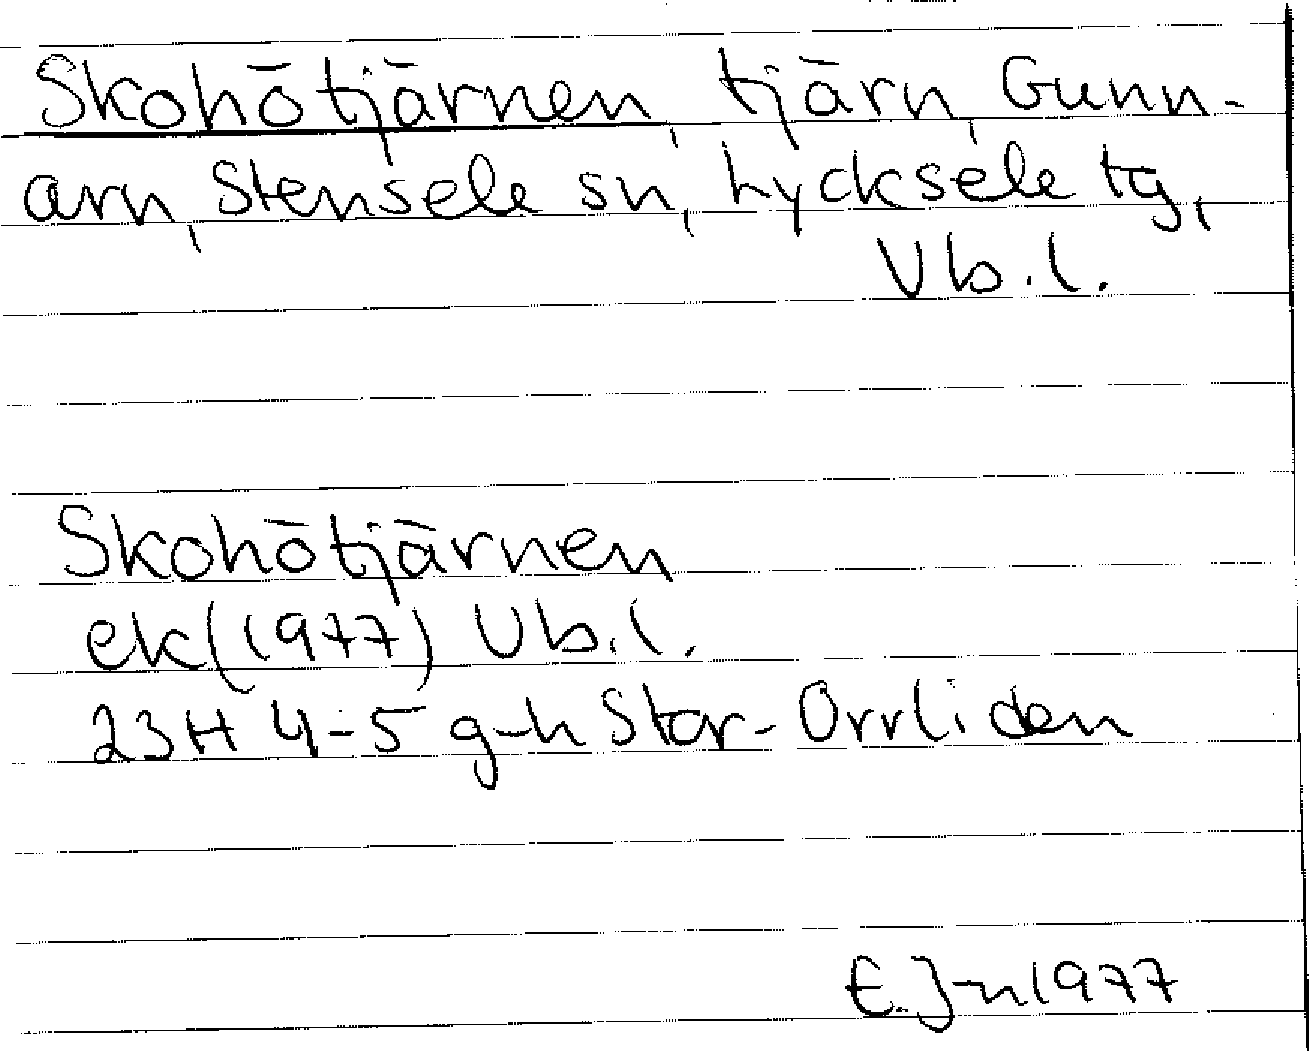 Skohötjärnen, tjärn, Gunn-
arn, Stensele sn, Lycksele tg,
Vb. l.
Skohötjärnen
ek (1977) Vb. l.
23H 4-5 g-h Stor-Orrliden
E. J-n 1977